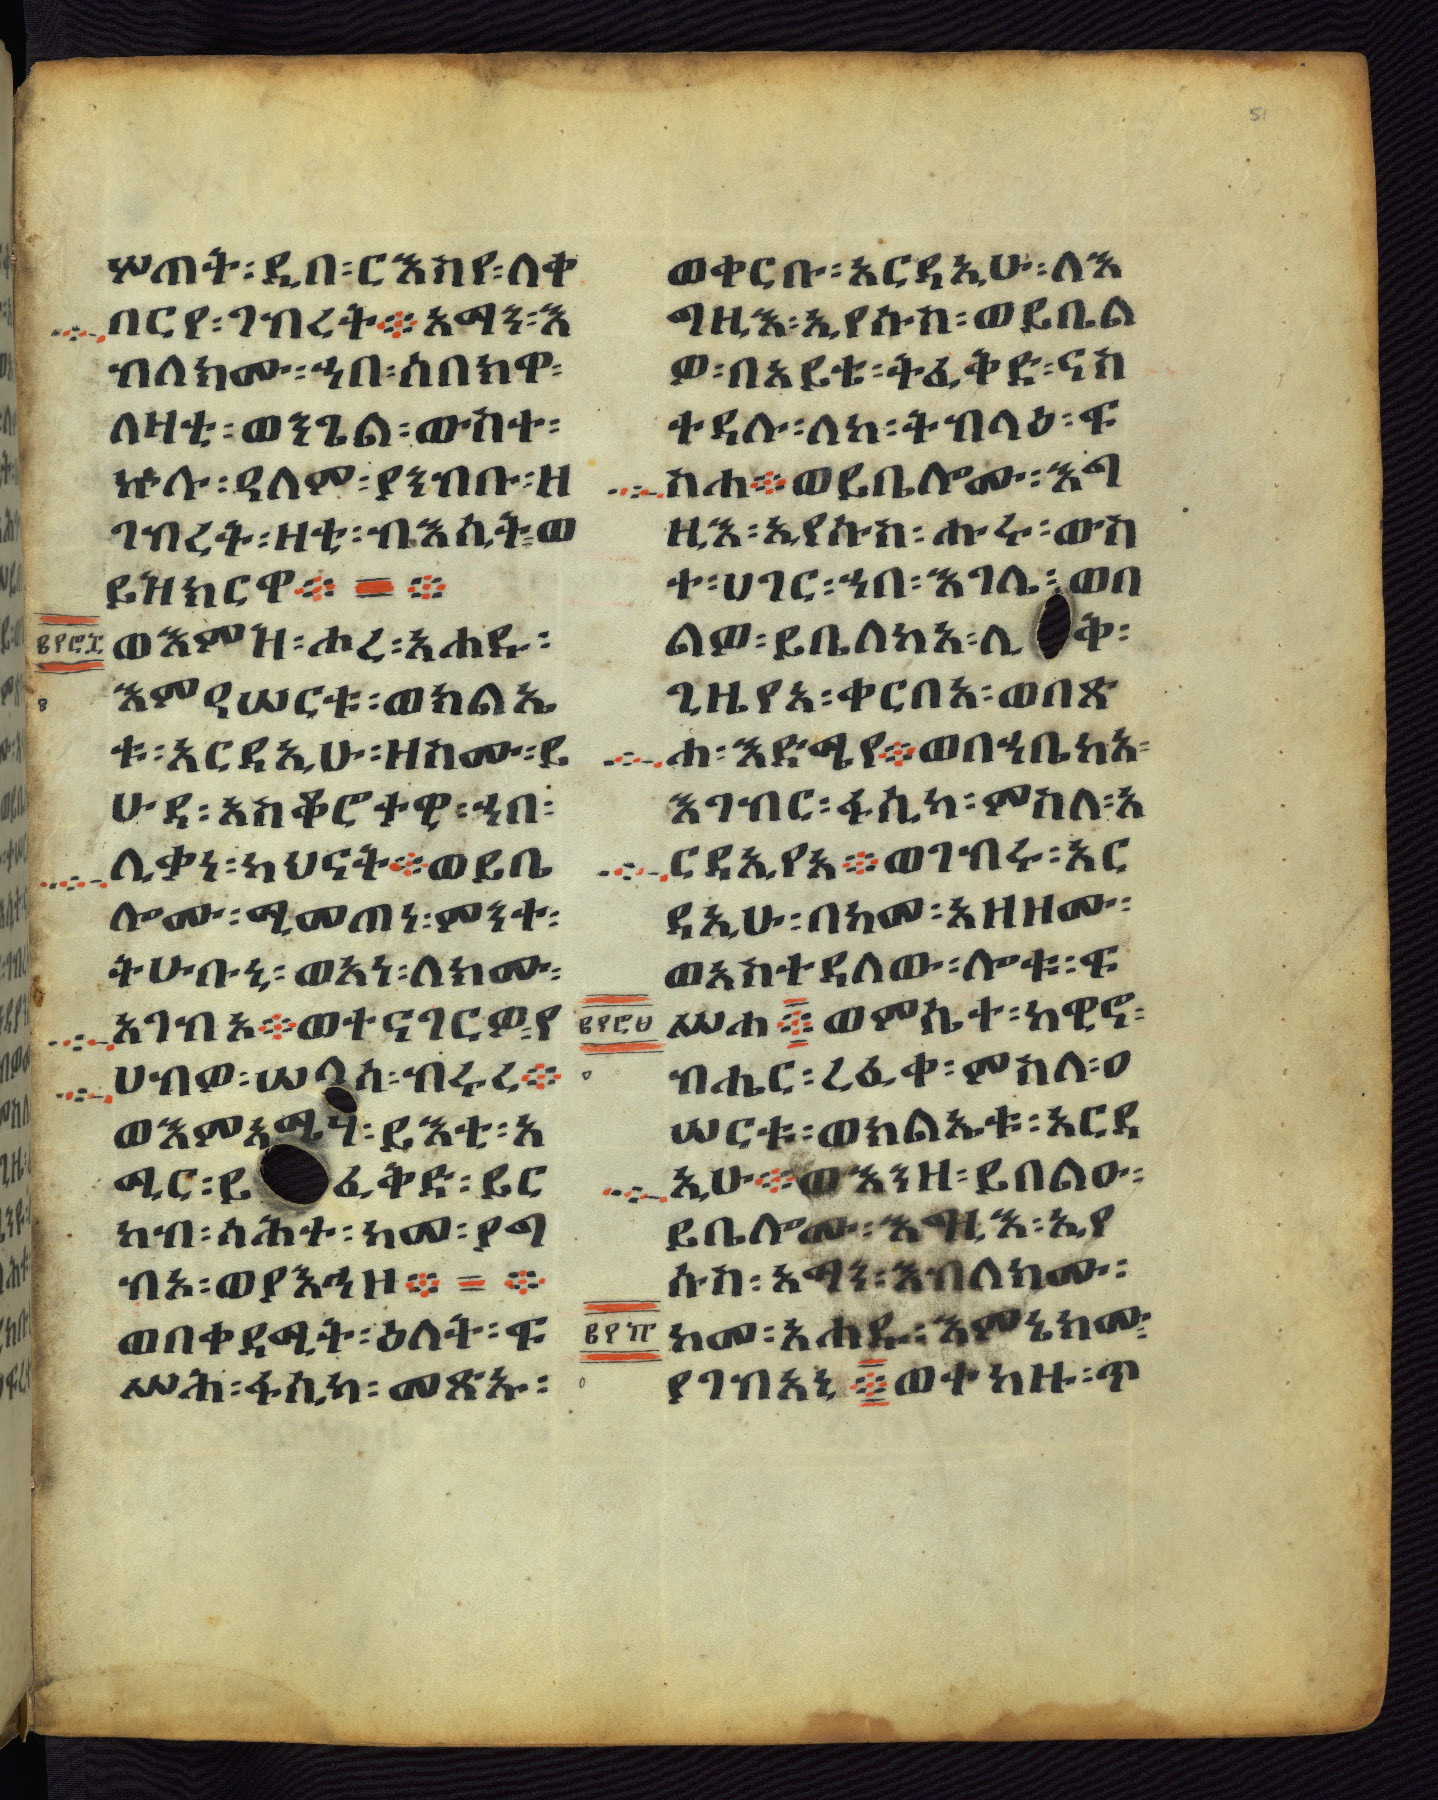 ሠጠት፡ዲበ፡ርእስየ፡ለቀ
በርየ፡ገብረት፨አማን፡እ
ብለክሙ፡ኀበ፡ሰበክዋ፡
ለዛቲ፡ወንጌል፡ውስተ፡
ኵሉ፡ዓለም፡ያንብቡ፡ዘ
ገብረት፡ዛቲ፡ብእሲት፡ወ
ይዝክርዋ፨ ፨
ወእምዝ፡ሖረ፡አሐዱ፡
እምዐሠርቱ፡ወክልኤ
ቱ፡አርዳኢሁ፡ዘስሙ፡ይ
ሁዳ፡አስቆሮተዊ፡ኀበ፡
ሊቃነ፡ካህናት፨ወይቤ
ሎሙ፡ሚመጠነ፡ምንተ፡
ትሁቡኒ፡ወአነ፡ለክሙ፡
አገብኦ፨ወተናገርዎ፡የ
ሀብዎ፡ሠላሰ፡ብሩረ፨
ወእምአሜሃ፡ይእቲ፡አ
ሚር፡ይፈቅድ፡ይር
ከብ፡ስሕተ፡ከመ፡ያግ
ብኦ፨ወያእኅዞ፨ ፨
ወበቀዳሚት፡ዕለት፡ፍ
ሡሕ፡ፋሲካ፡መጽኡ፡
ወቀርቡ፡አርዳኢሁ፡ለእ
ግዚእ፡ኢየሱስ፡ወይቤል
ዎ፡በአይቴ፡ትፈቅድ፡ናስ
ተዳሉ፡ለከ፡ትብላዕ፡ፍ
ስሐ፨ወይቤሎሙ፡እግ
ዚእ፡ኢየሱስ፡ሑሩ፡ውስ
ተ፡ሀገር፡ኀበ፡እገሌ፡ወበ
ልዎ፡ይቤለከአ፡ሊቅ፡
ጊዜየአ፡ቀርበአ፡ወበጽ
ሐ፡እድሜየ፨ወበኀቤከአ፡
እገብር፡ፋሲካ፡ምስለ፡አ
ርዳኢየአ፨ወገብሩ፡አር
ዳኢሁ፡በከመ፡አዘዘሙ፡
ወአስተዳለው፡ሎቱ፡ፍ
ሡሐ፨ወምሴተ፡ከዊኖ፡
ብሔር፡ረፈቀ፡ምስለ፡ዐ
ሠርቱ፡ወክልኤቱ፡አርዳ
ኢሁ፨ወእንዘ፡ይበልዑ፡
ይቤሎሙ፡እግዚእ፡ኢየ
ሱስ፡አማን፡እብለክሙ፡
ከመ፡አሐዱ፡እምኔክሙ፡
ያገብአኒ፨ወተከዙ፡ጥ